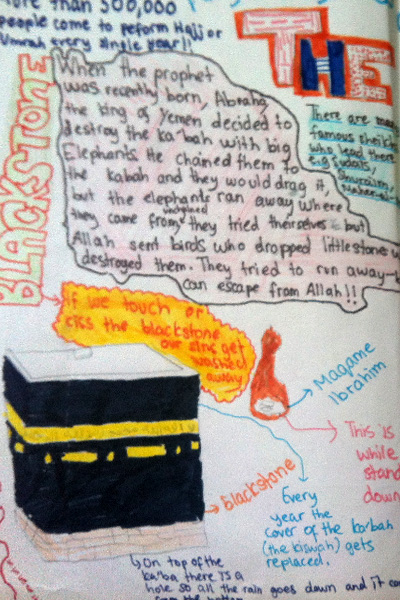 more than 300,000
people come to peform Hajj or
Umrah every single year!!
THE
BLACKSTONE
When the prophet
was recently born, Abraha,
the king of Yemen decided to
destroy the ka'bah with big
Elephants. He chained them to
the kabah and they would drag it,
but the elephants ran away where
they came from, they tried theirselves but
Allah sent birds who dropped little stones
destroyed them. They tried to run away
can escape from Allah!!
There are many
famous sheikhs
who lead there
e.g Sudais,
Shuraim,
if we touch or
kiss the blackstone
our sins get
washed
away
Maqame
Ibrahim
This is
while
stand
down
blackstone
Every
year the
cover of the ka'bah
(the kiswah) gets
replaced.
On top of the
ka'ba there is a
hole so all the rain goes down and it